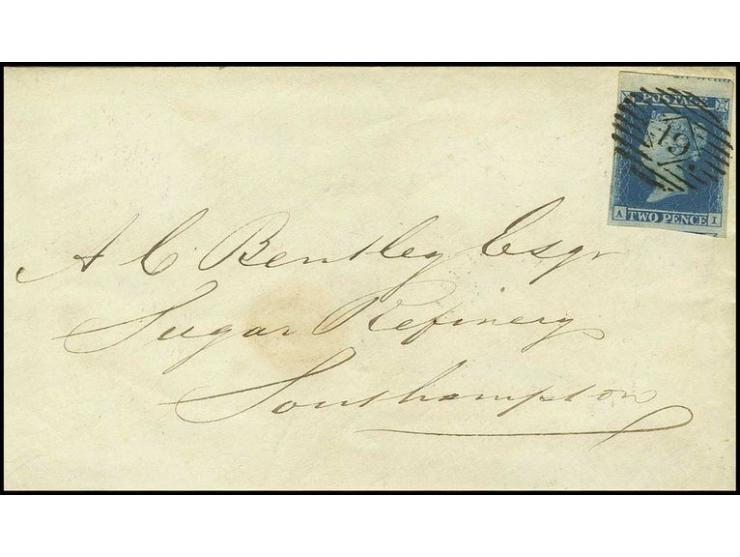 POSTAGE
19
A TWO PENCE I
A C Bentley Esqr
Sugar Refinery
Southampton